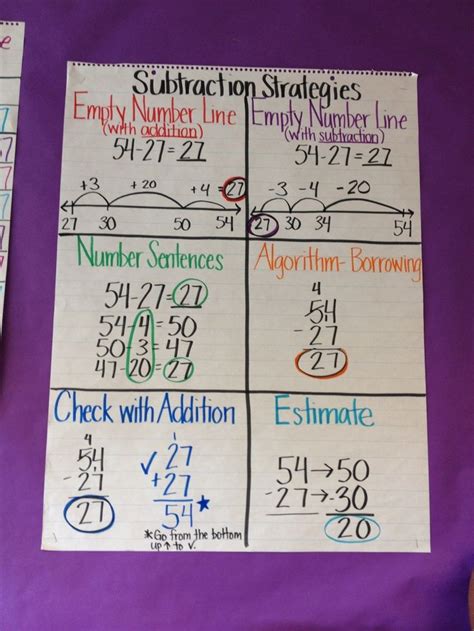 Subtraction Strategies
Empty Number Line
(with addition)
54-27=27
+3 +20 +4 =27
27 30 50 54
Empty Number Line
(with subtraction)
54-27=27
-3 -4 -20
27 30 34 54
Number Sentences
54-27=27
54-4=50
50-3=47
47-20=27
Algorithm-Borrowing
4
54
-27
27
Check with Addition
4
54
-27
27
1
✓ 27
+27
54 *
*Go from the bottom
up ↑ to ✓.
Estimate
54→50
-27→-30
20